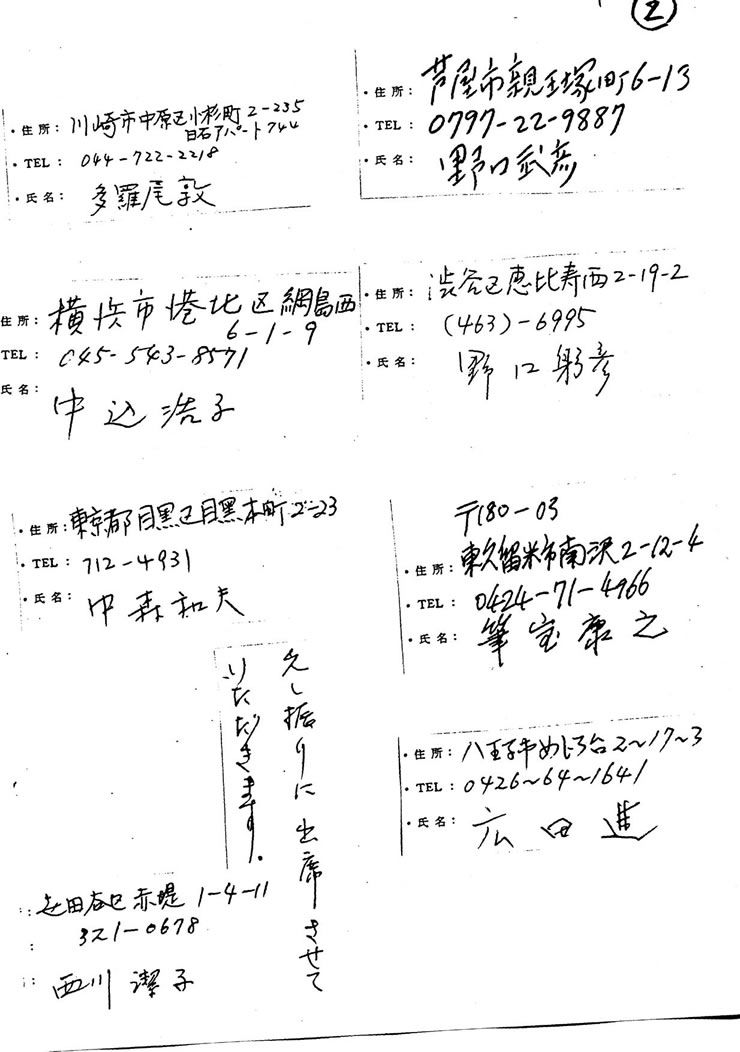 2
・住所： 川崎市中原区小杉町2-235
白石アパート744
・TEL： 044-722-2218
・氏名： 多羅尾敦
・住所： 芦屋市親王塚町6-13
・TEL： 0797-22-9887
・氏名： 野口武彦
住所： 横浜市港北区綱島西
6-1-9
TEL： 045-543-8571
氏名： 中込浩子
・住所： 渋谷区恵比寿西2-19-2
・TEL： (463)-6995
・氏名： 野口 彦
・住所： 東京都目黒区目黒本町2-23
・TEL： 712-4931
・氏名： 中森和夫
〒180-03
・住所： 東久留米市南沢2-12-4
・TEL： 0424-71-4966
・氏名： 筆宝康之
久し振りに出席させて
いただきます。
・住所： 八王子市めじろ台2〜17〜3
・TEL： 0426〜64〜1641
・氏名： 広田進
世田谷区赤堤1-4-11
321-0678
西川潔子